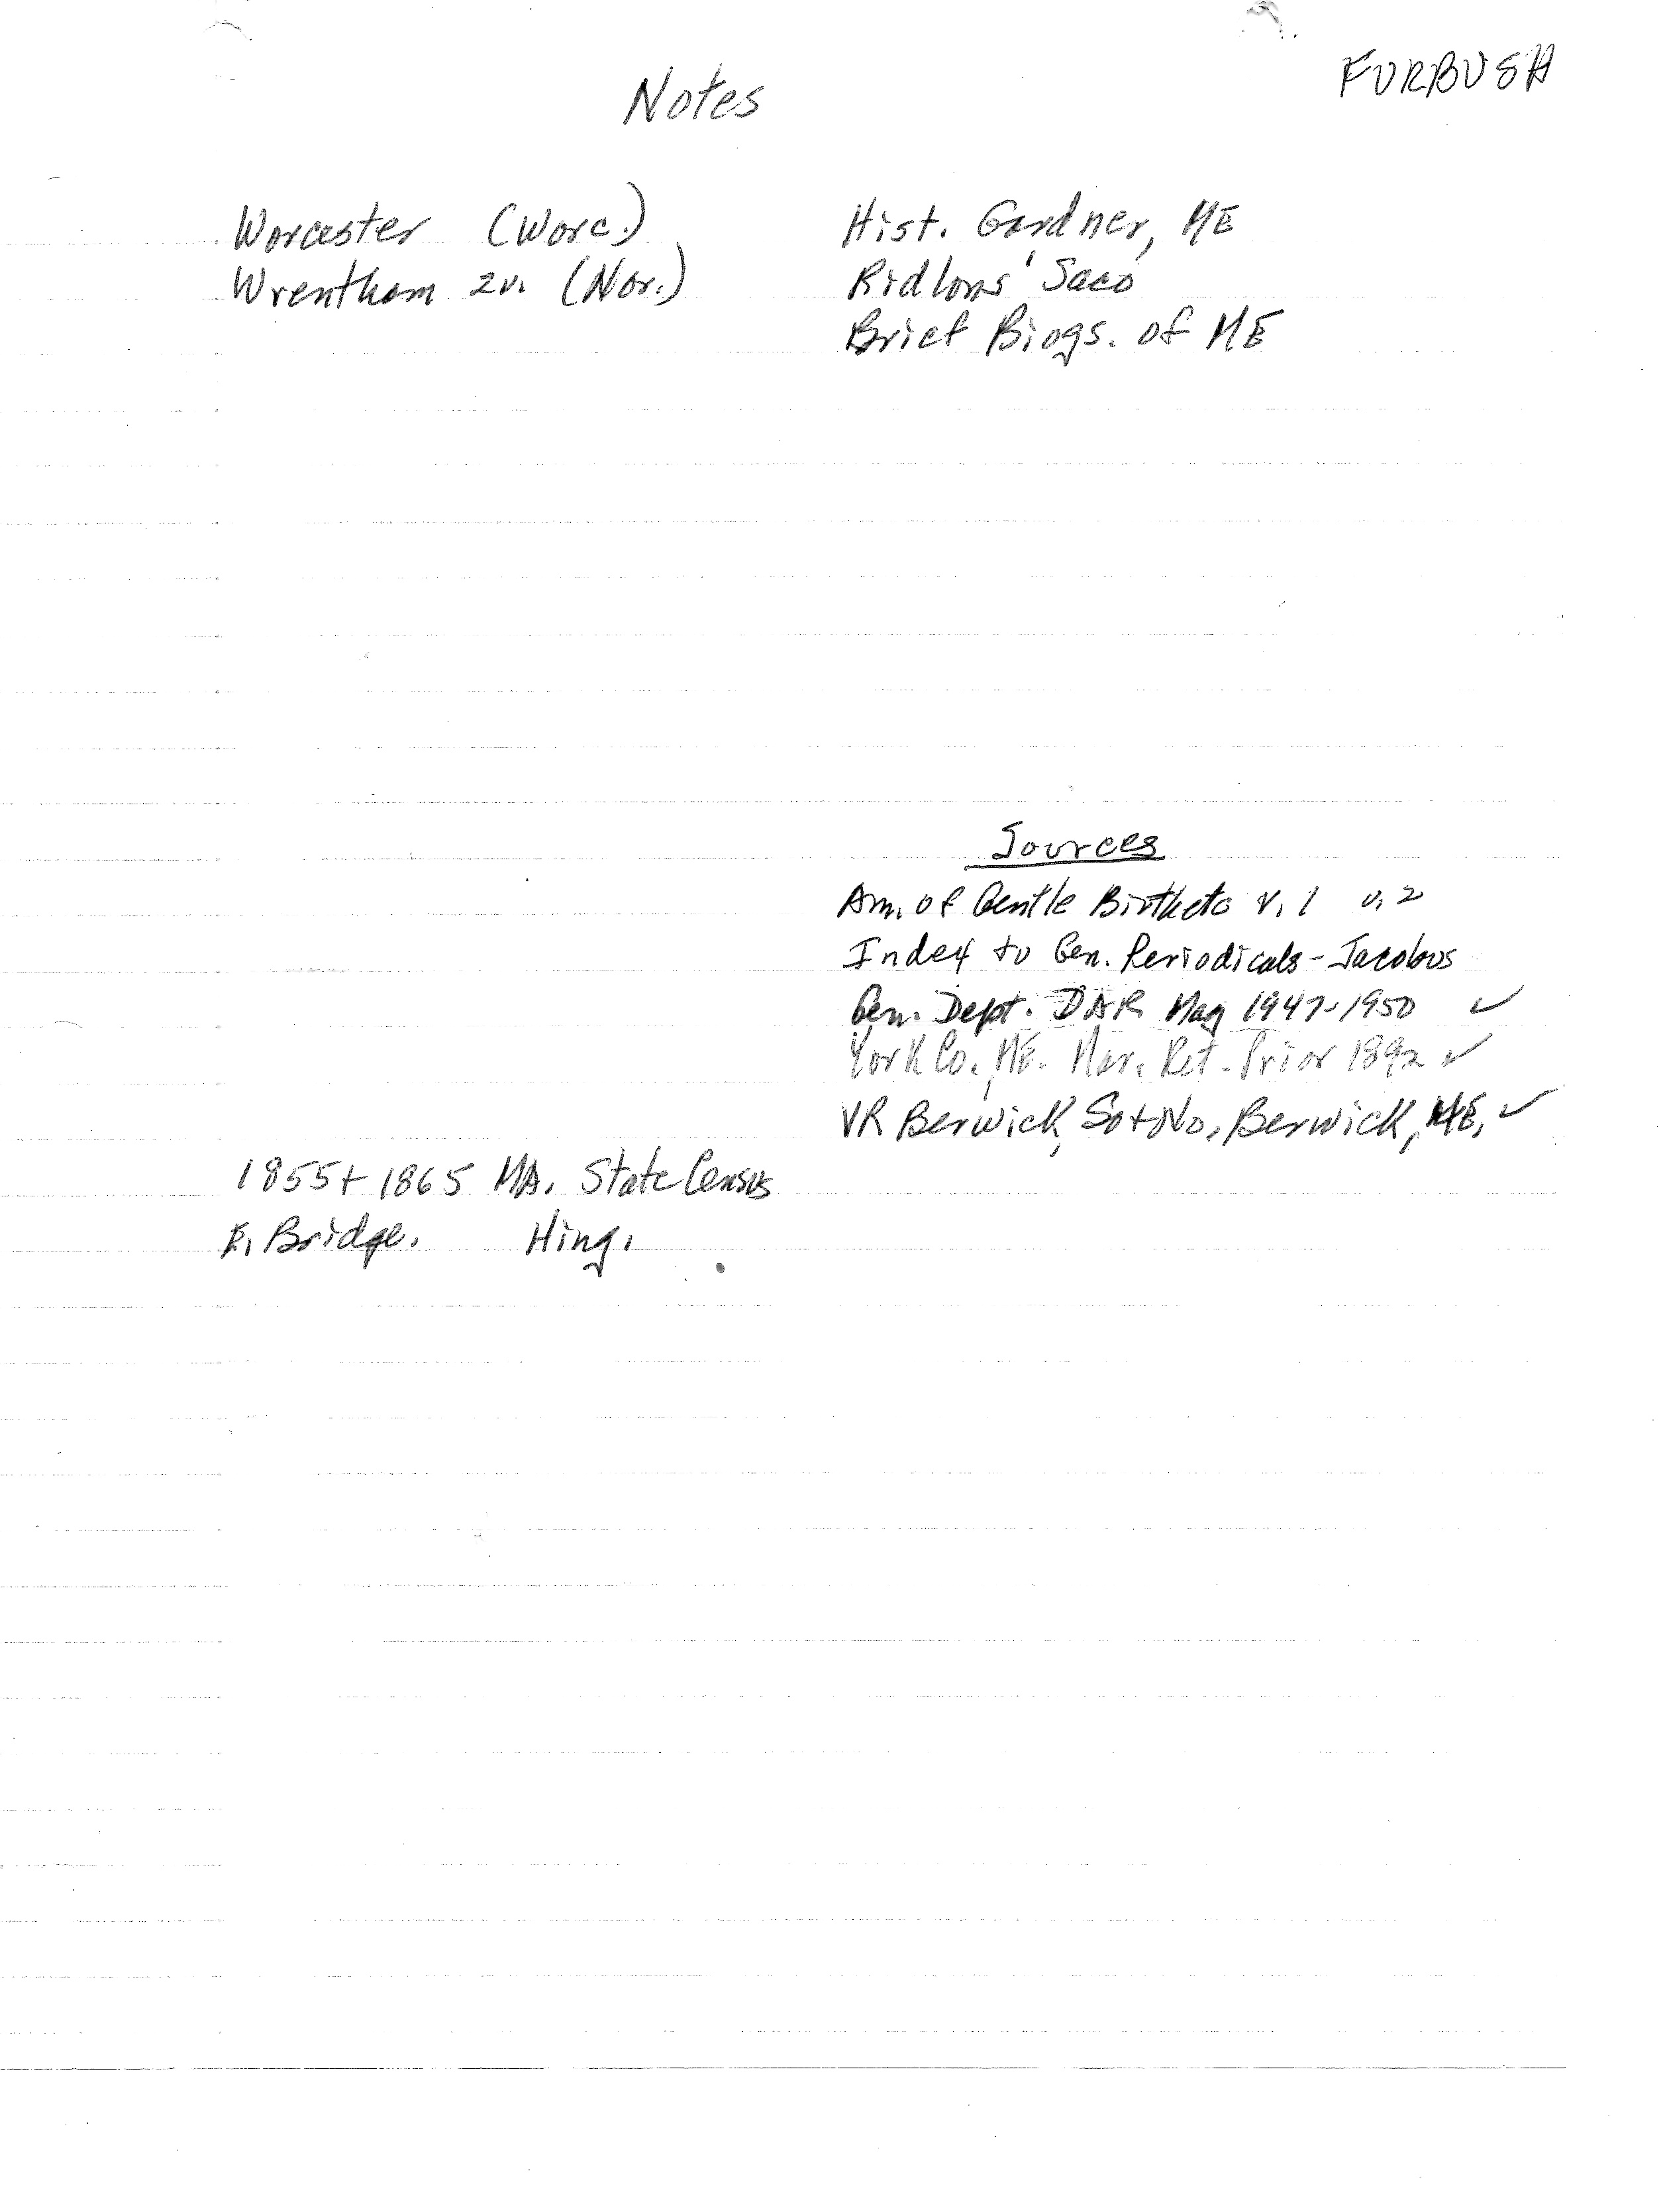 FURBUSH
Notes
Worcester (Worc.)
Wrentham 2v. (Nor.)
Hist. Gardner, ME
Ridlons' Saco
Brief Biogs. of ME
Sources
Am. of Gentle Birthetc v. 1 v. 2
Index to Gen. Periodicals - Jacobus
Gen. Dept. DAR Mag 1947-1950 ✓
York Co., ME. Mar. Ret. Prior 1892 ✓
VR Berwick, So + No. Berwick, ME. ✓
1855 + 1865 MA. State Census
E. Bridge. Hing.